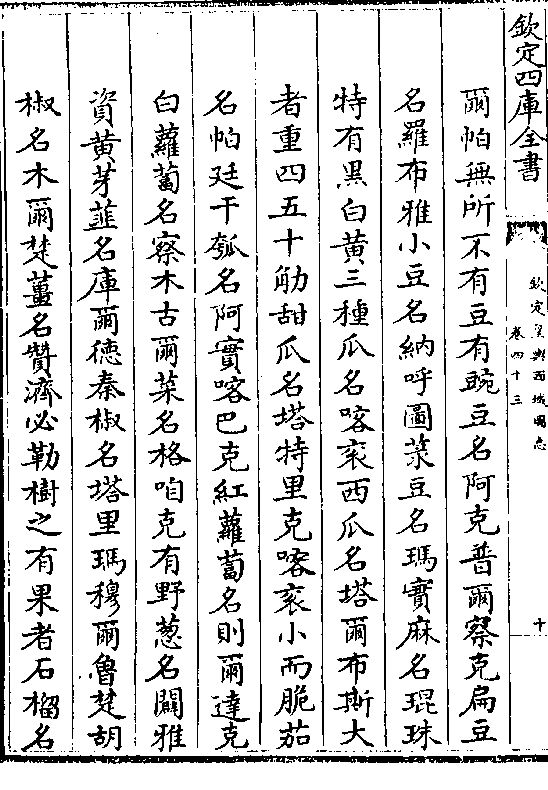 欽定四庫全書
欽定皇輿西域圖志
卷四十三
十
爾帕無所不有豆有豌豆名阿克普爾察克扁豆
名羅布雅小豆名納呼圖菉豆名瑪實麻名琨珠
特有黑白黃三種瓜名喀衮西瓜名塔爾布斯大
者重四五十觔甜瓜名塔特里克喀衮小而脆茄
名帕廷干瓠名阿實喀巴克紅蘿蔔名則爾達克
白蘿蔔名察木古爾菜名格咱克有野葱名闢雅
資黃芽韮名庫爾德秦椒名塔里瑪穆爾魯楚胡
椒名木爾楚薑名贊濟必勒樹之有果者石榴名